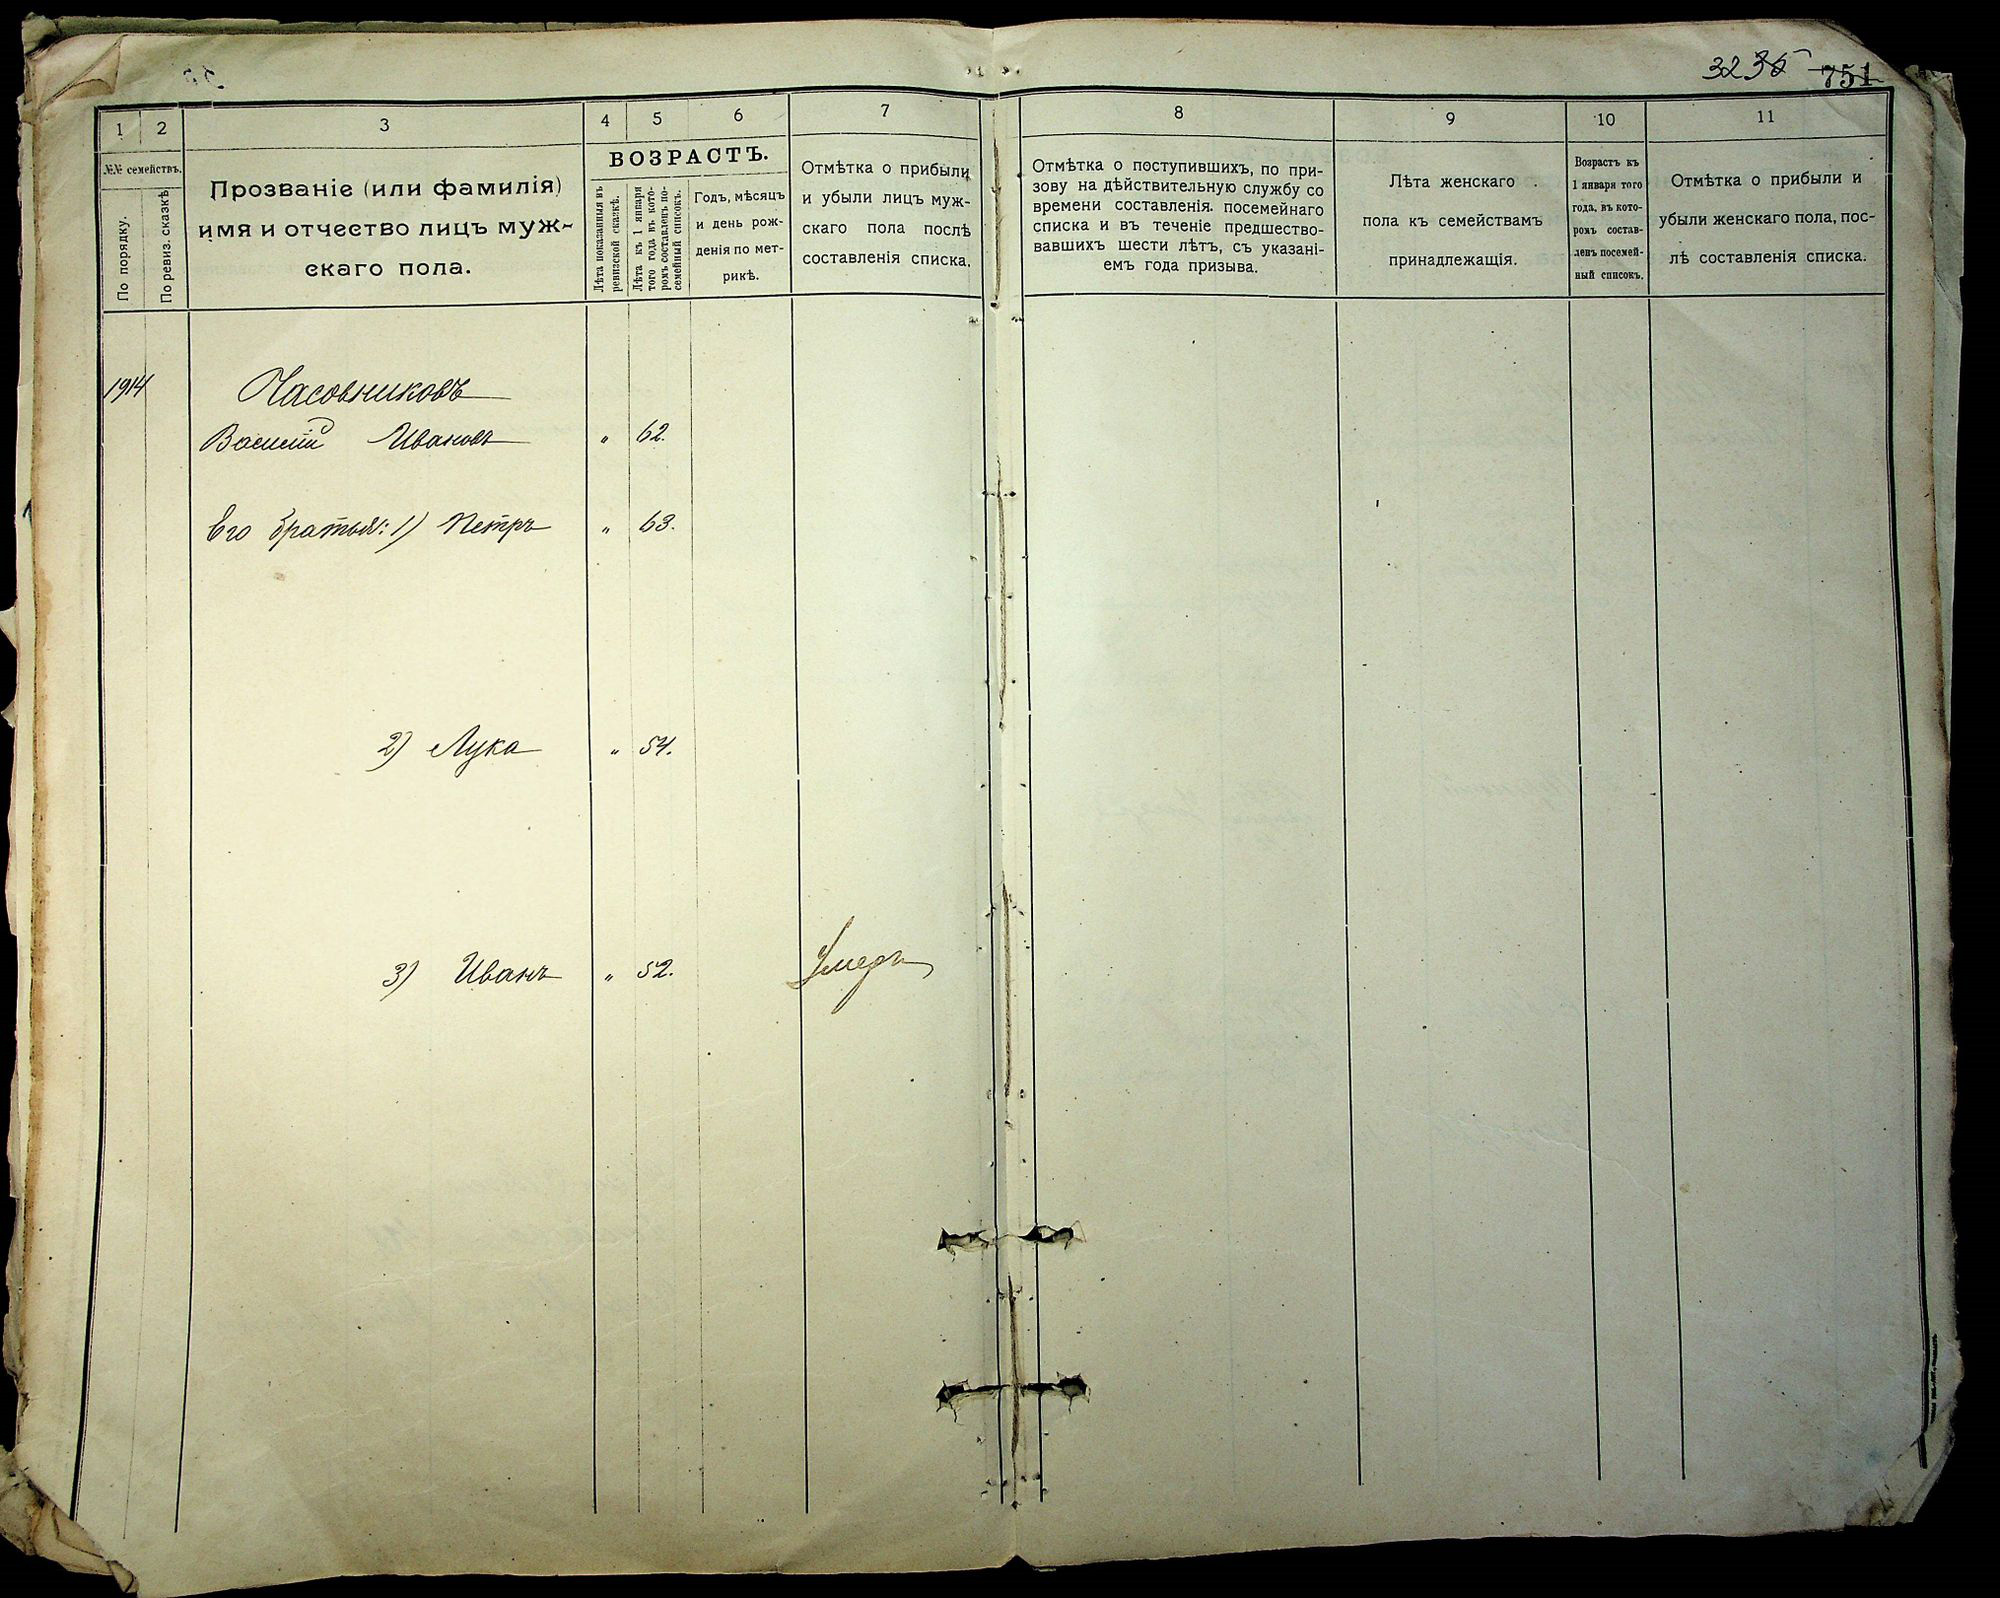 3235 751
1 2 3 4 5 6 7 8 9 10 11
№№ семействъ.
По порядку.
По ревиз. сказкѣ
Прозваніе (или фамилія)
имя и отчество лицъ муж-
скаго пола.
ВОЗРАСТЪ.
Лѣта показанныя въ
ревизской сказкѣ.
Лѣта къ 1 января
того года въ кото-
ромъ составленъ по-
семейный списокъ.
Годъ, мѣсяцъ
и день рож-
денія по мет-
рикѣ.
Отмѣтка о прибыли
и убыли лицъ муж-
скаго пола послѣ
составленія списка.
Отмѣтка о поступившихъ, по при-
зову на дѣйствительную службу со
времени составленія. посемейнаго
списка и въ теченіе предшество-
вавшихъ шести лѣтъ, съ указані-
емъ года призыва.
Лѣта женскаго
пола къ семействамъ
принадлежащія.
Возрастъ къ
1 января того
года, въ кото-
ромъ состав-
ленъ посемей-
ный списокъ.
Отмѣтка о прибыли и
убыли женскаго пола, пос-
лѣ составленія списка.
1914 Часовниковъ
Василій Ивановъ " 62.
Его братья: 1) Петръ " 63.
2) Лука " 54.
3) Иванъ " 52. Умеръ